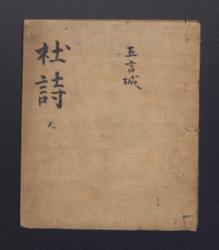 杜詩
五言城